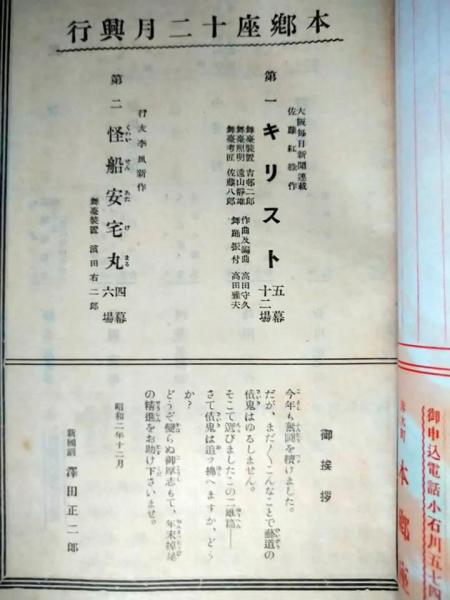 本郷座十二月興行
第一
大阪毎日新聞連載
佐藤紅緑作
キリスト
五幕
十二場
舞臺裝置 吉邨二郎
舞臺照明 遠山靜雄
舞臺考匠 佐藤八郎
作曲及編曲 高田守久
舞踊振付 高田雅夫
第二
行友李風新作
怪船安宅丸
くわいせんあたけまる
四幕
六場
舞臺裝置 濱田右二郎
御挨拶
今年も奮鬪を續けました。
だが、まだ〳〵こんなことで藝道の
債鬼はゆるしません。
そこで選びましたこの二雄篇——
さて債鬼は追つ拂へますか、どう
か？
どうぞ變らぬ御厚志もて、年末掉尾
の精進をお助け下さいませ。
昭和二年十二月
新國劇 澤田正二郎
御申込電話小石川五十四
本郷座